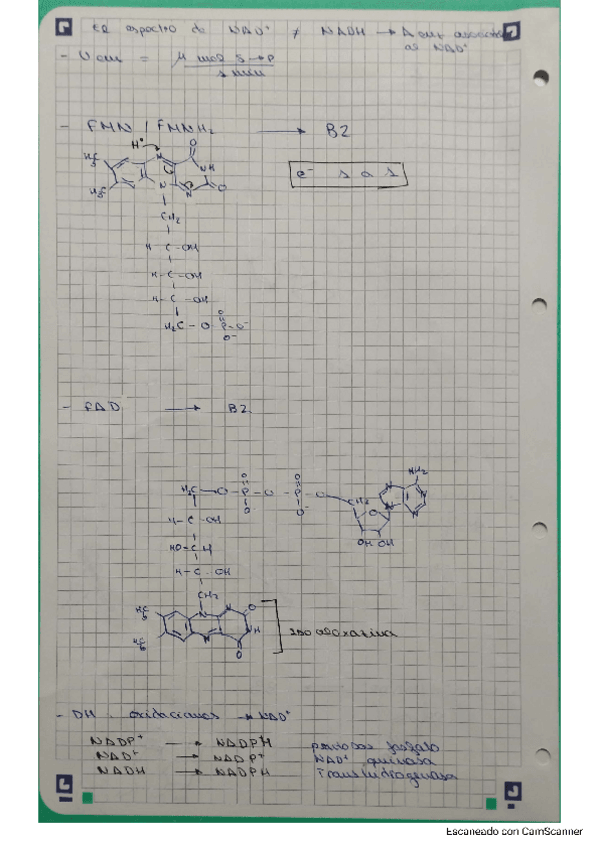 El espectro de NAD⁺ ≠ NADH → A
- U = μ mol S → P
1 min
- FMN / FMNH₂ → B2
H⁺
O
H₃C
N
NH
H₃C
N
N
O
e⁻ 1 a 1
CH₂
H - C - OH
H - C - OH
H - C - OH
H₂C - O - P - O⁻
O
O⁻
- FAD → B2
NH₂
O O
H₂C - O - P - O - P - O - CH₂
O O⁻
O
H - C - OH
OH OH
HO - C - H
H - C - OH
CH₂
H₃C
N
N
O
NH
H₃C
N
O
isoaloxacina
- DH. oxidaciones → NAD⁺
NADP⁺ → NADPH pentosas fosfato
NAD⁺ → NADP⁺ NAD⁺ quinasa
NADH → NADPH Transhidrogenasa
Escaneado con CamScanner